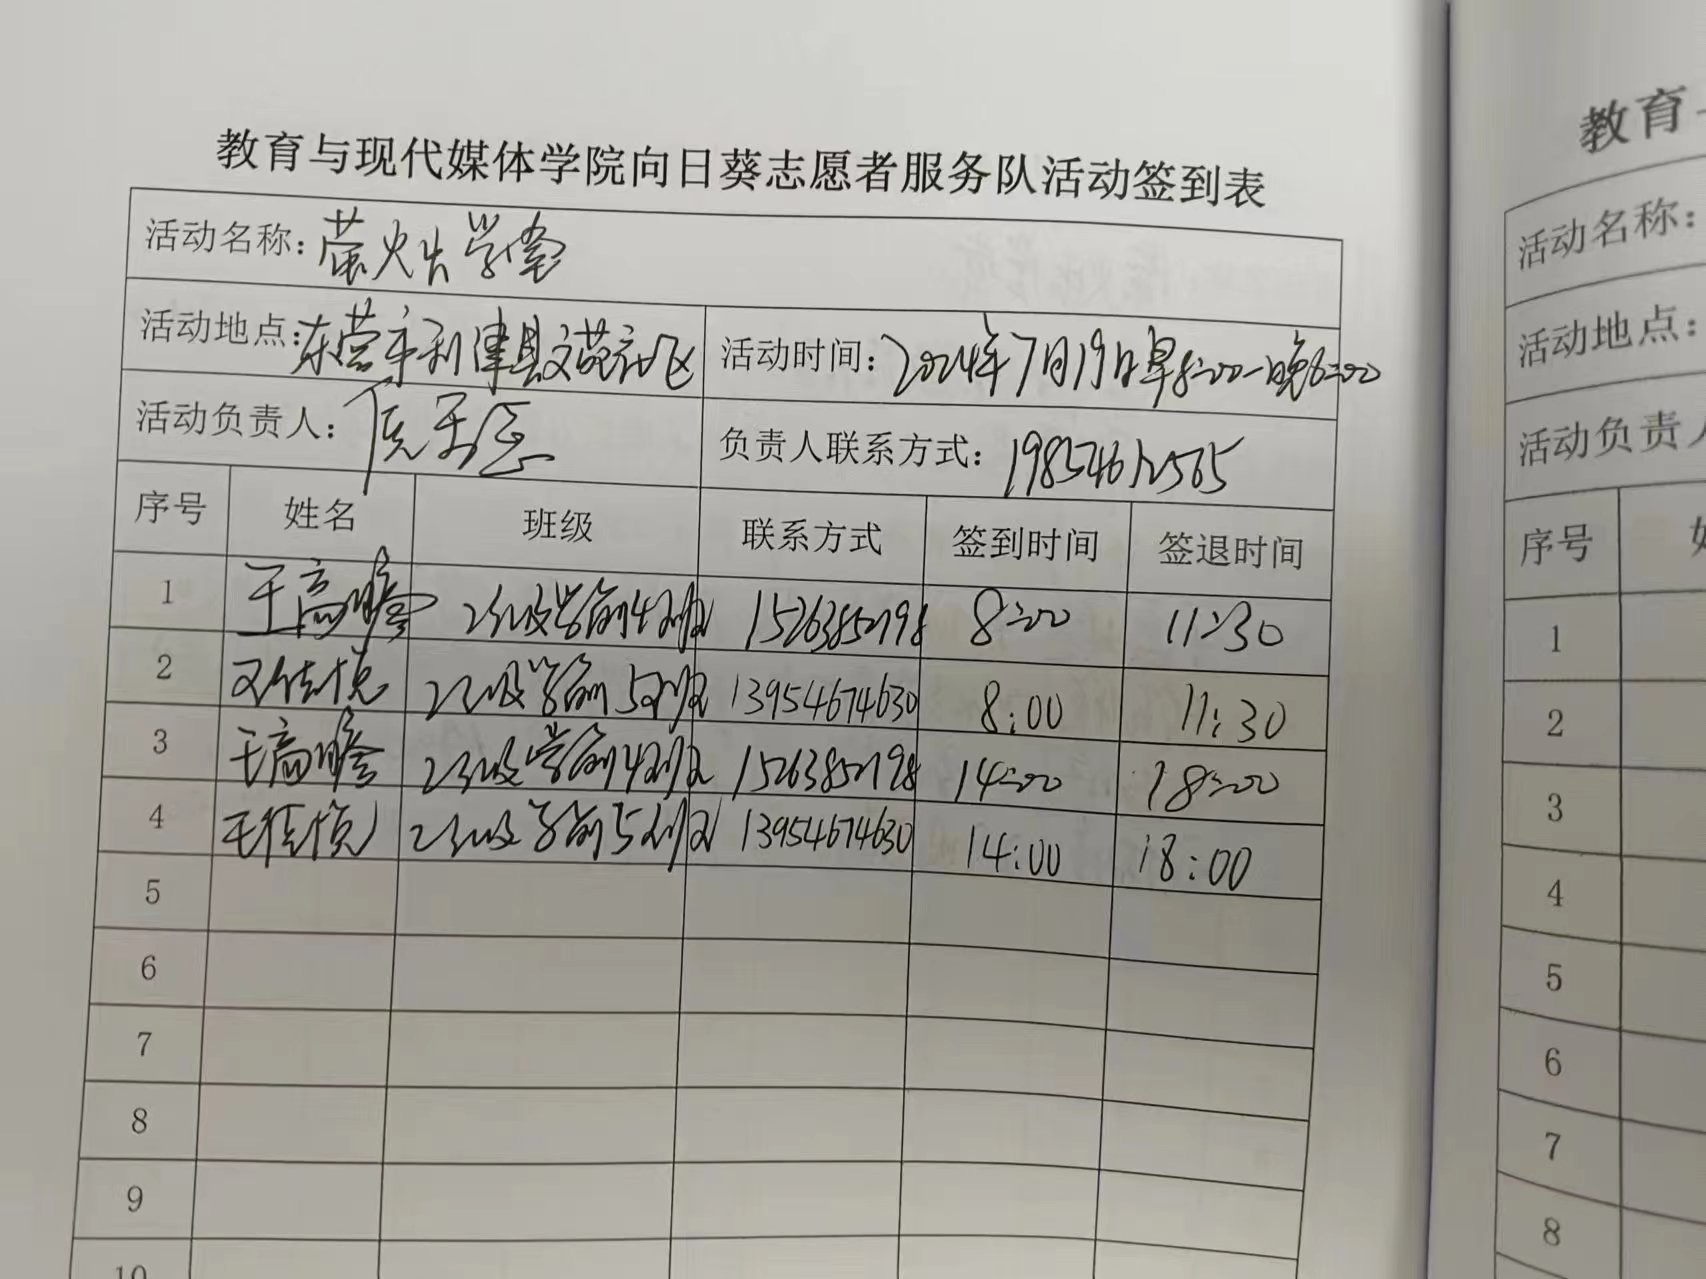 教育与现代媒体学院向日葵志愿者服务队活动签到表
活动名称：萤火虫学堂
活动地点：东营市利津县文苑社区 活动时间：2024年7月19日早8:00-晚6:00
活动负责人：侯玉 负责人联系方式：19854612565
序号 姓名 班级 联系方式 签到时间 签退时间
1 王高瞻 22级学前4班 15263852798 8:00 11:30
2 佳悦 22级学前5班 13954674630 8:00 11:30
3 王高瞻 22级学前4班 15263852798 14:00 18:00
4 王佳悦 22级学前5班 13954674630 14:00 18:00
5
6
7
8
9
10
教育
活动名称：
活动地点：
活动负责人
序号
1
2
3
4
5
6
7
8